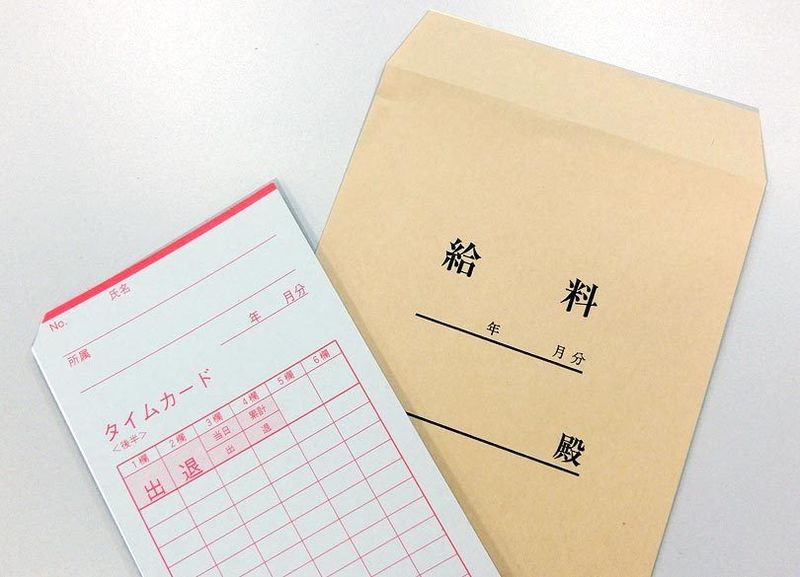 No. 氏名
所属
年 月分
タイムカード
<後半>
1欄 2欄 3欄 4欄 5欄 6欄
出 退 当日 累計
出 退
給料
年 月分
殿